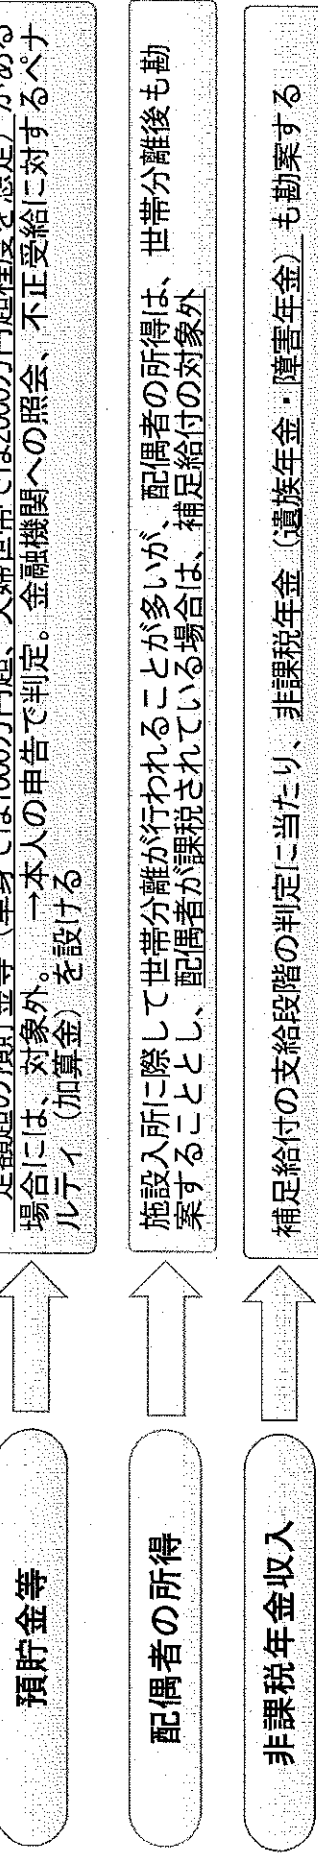 預貯金等
一定額超の預貯金等(単身では1000万円超、夫婦世帯では2000万円超程度を想定)がある
場合には、対象外。 →本人の申告で判定。金融機関への照会、不正受給に対するペナ
ルティ(加算金)を設ける
配偶者の所得
施設入所に際して世帯分離が行われることが多いが、配偶者の所得は、世帯分離後も勘
案することとし、配偶者が課税されている場合は、補足給付の対象外
非課税年金収入
補足給付の支給段階の判定に当たり、非課税年金(遺族年金・障害年金)も勘案する